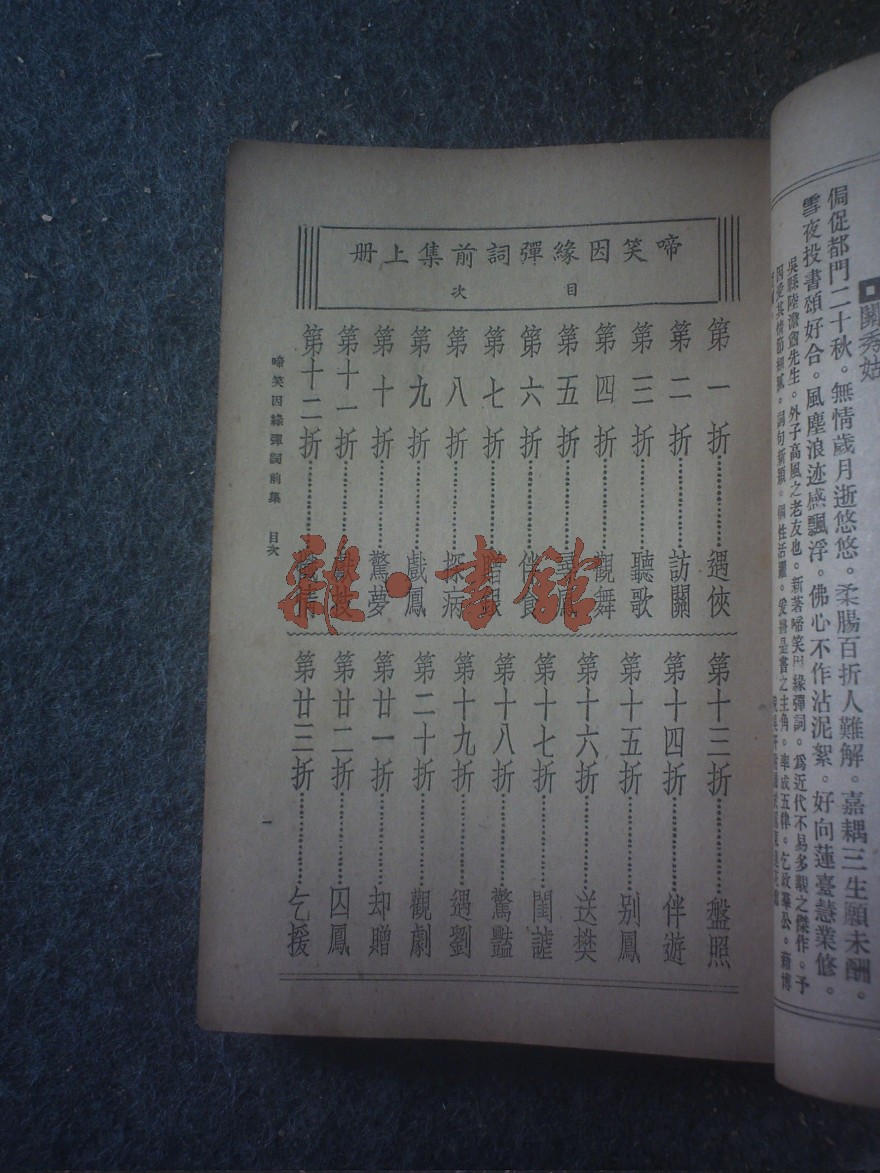 關秀姑
侷促都門二十秋。無情歲月逝悠悠。柔腸百折人難解。嘉耦三生願未酬。
雪夜投書頌好合。風塵浪迹感飄浮。佛心不作沾泥絮。好向蓮臺慧業修。
吳縣陸澹盦先生。外子高風之老友也。新著啼笑因緣彈詞。爲近代不易多覯之傑作。予
啼笑因緣彈詞前集上册
目次
第一折 遇俠
第二折 訪關
第三折 聽歌
第四折 觀舞
第五折 尋鳳
第六折 伴食
第七折 贈銀
第八折 探病
第九折 戲鳳
第十折 驚夢
第十一折 獻技
第十二折
第十三折 盤照
第十四折 伴遊
第十五折 别鳳
第十六折 送樊
第十七折 閨謔
第十八折 驚豔
第十九折 遇劉
第二十折 觀劇
第廿一折 却贈
第廿二折 囚鳳
第廿三折 乞援
啼笑因緣彈詞前集 目次
一
雜·書館